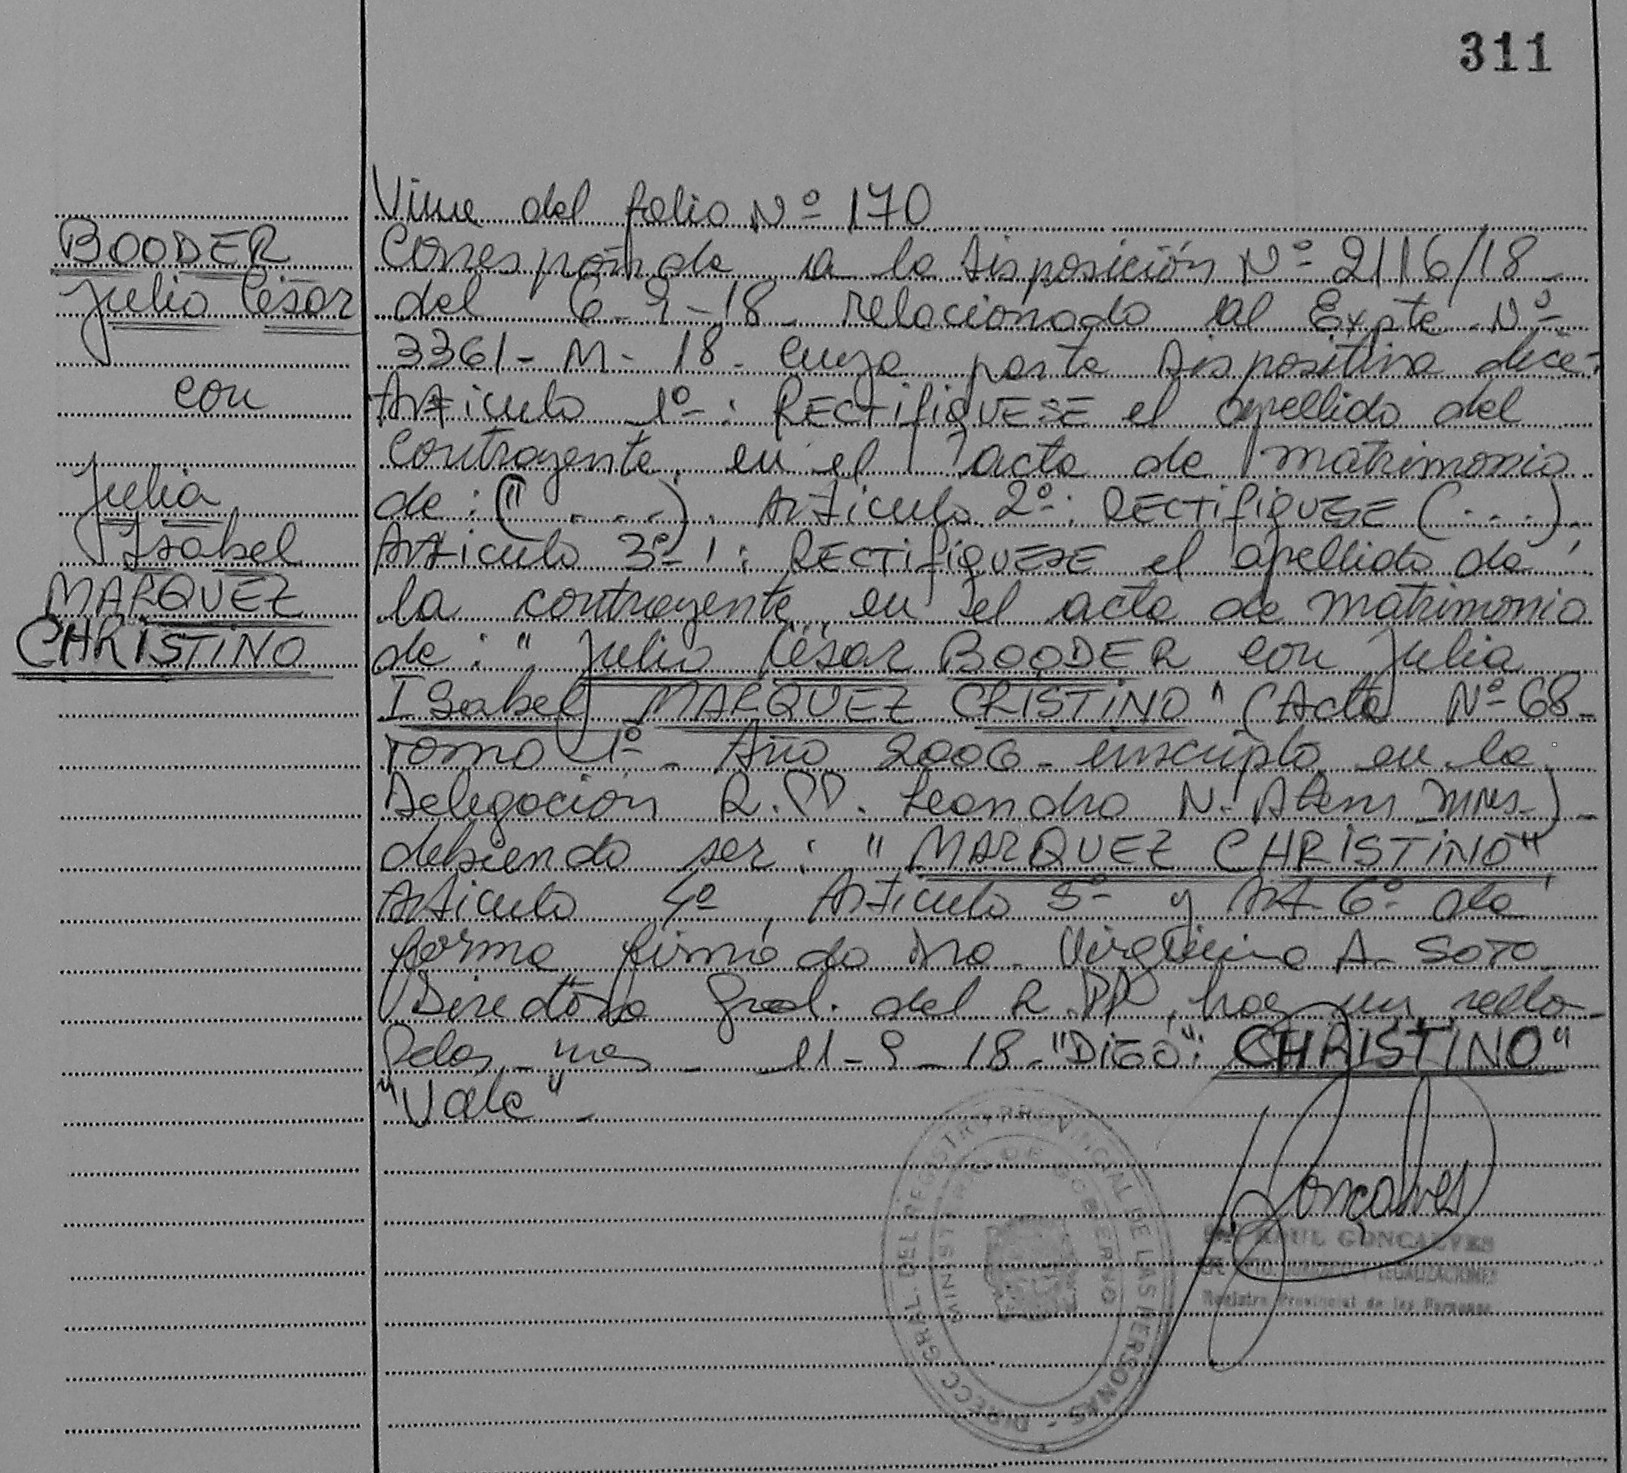 311
BOODER
Julio César
con
Julia
Isabel
MARQUEZ
CHRISTINO
Viene del folio Nº 170
Corresponde a la Disposición Nº 2116/18
del 6-9-18- relacionado al Expte Nº
3361-M-18- cuya parte dispositiva dice:
Artículo 1º: RECTIFIQUESE el apellido del
contrayente en el acta de matrimonio
de: (" ....). Artículo 2º: RECTIFIQUESE (...).
Artículo 3º: RECTIFIQUESE el apellido de
la contrayente en el acta de matrimonio
de: " Julio César BOODER con Julia
Isabel MARQUEZ CRISTINO" (Acta Nº 68-
Tomo 1º- Año 2006- inscripta en la
Delegación R.PP. Leandro N. Alem Mnes-)-
debiendo ser: "MARQUEZ CHRISTINO"
Artículo 4º, Artículo 5º y Art 6º de
forma firmado Dra. Virginia A. SOTO
Directora Gral. del R.PP, hay un sello-
Pdas- mes 11-9-18-"DIGO": CHRISTINO"
"Vale"-
Goncalves
RAUL GONCALVES
LEGALIZACIONES
Registro Provincial de las Personas
DIRECC. GRAL. DEL REGISTRO PROVINCIAL DE LAS PERSONAS
MINISTERIO DE GOBIERNO